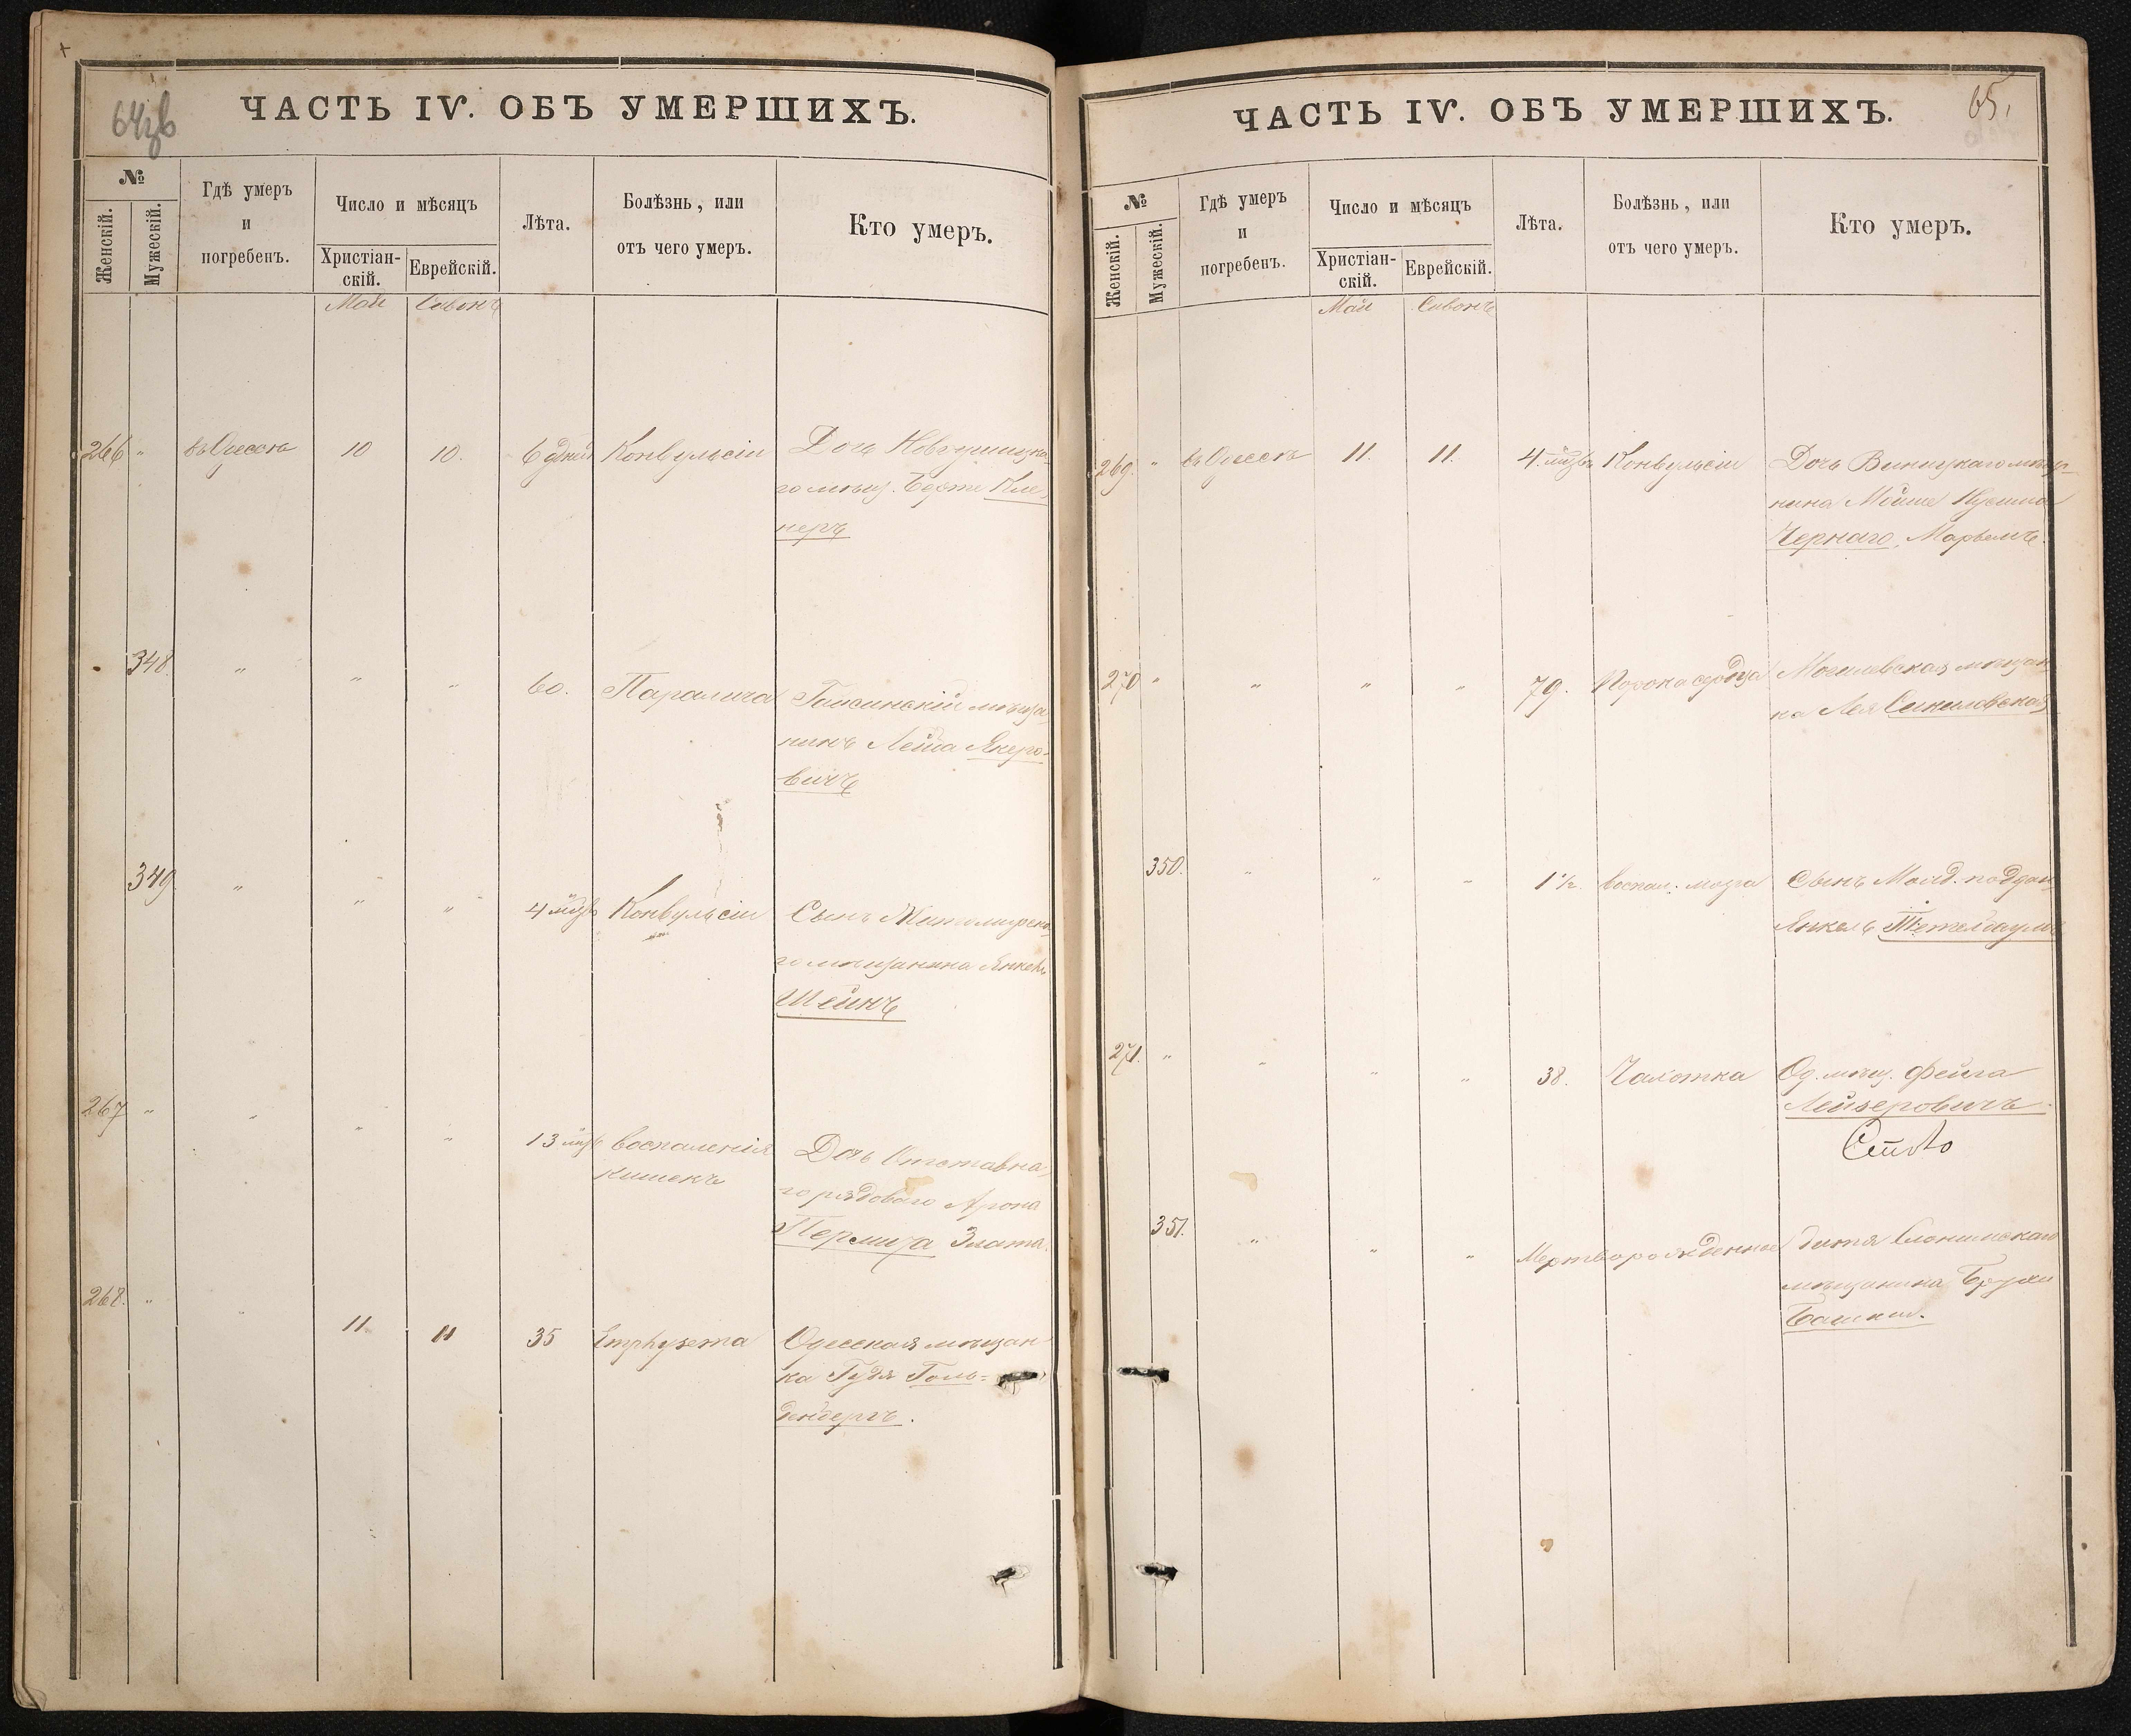 64зв
ЧАСТЬ IV. ОБЪ УМЕРШИХЪ.
№
Женскій.
Мужескій.
Гдѣ умеръ
и
погребенъ.
Число и мѣсяцъ
Христіан-
скій.
Еврейскій.
Лѣта.
Болѣзнь, или
отъ чего умеръ.
Кто умеръ.
Май Сивонъ
266 " въ Одессѣ 10 10. 6 дней Конвульсіи Дочь
го мѣщ. Кле-
неръ
348 " " " 60. Паралича Гайсинскій мѣща
нинъ Лейба Якеро-
вичъ
349 " " " 4 мѣс Конвульсіи Сынъ Житомирска
го мѣщанина Янкель
Шейнъ
267 " " " " 13 мѣс воспаленія Дочь Отставна
кишекъ го рядоваго Арона
Злата.
268. " " 11. 11 35 Emphysema Одесская мѣщан
ка Гудя Голь-
дендергъ.
65.
ЧАСТЬ IV. ОБЪ УМЕРШИХЪ.
№
Женскій.
Мужескій.
Гдѣ умеръ
и
погребенъ.
Число и мѣсяцъ
Христіан-
скій.
Еврейскій.
Лѣта.
Болѣзнь, или
отъ чего умеръ.
Кто умеръ.
Май Сивонъ
269. " въ Одессѣ 11. 11. 4. мѣс Конвульсіи Дочь Виницкаго мѣщ-
нина Мойше Нусима
Чернаго, Марьемъ.
270 " " " " 79. Порока сердца Могилевская мѣщан
ка Лея
350. " " " 1½. воспал. мозга Сынъ Молд. поддан
Янкель Тетелбаумъ
271. " " " " 38. Чахотка Од. мѣщ. Фейга
Лейзеровичъ.
351. " " " Мертворожденное дитя Слонимскаго
мѣщанина
Башкин.